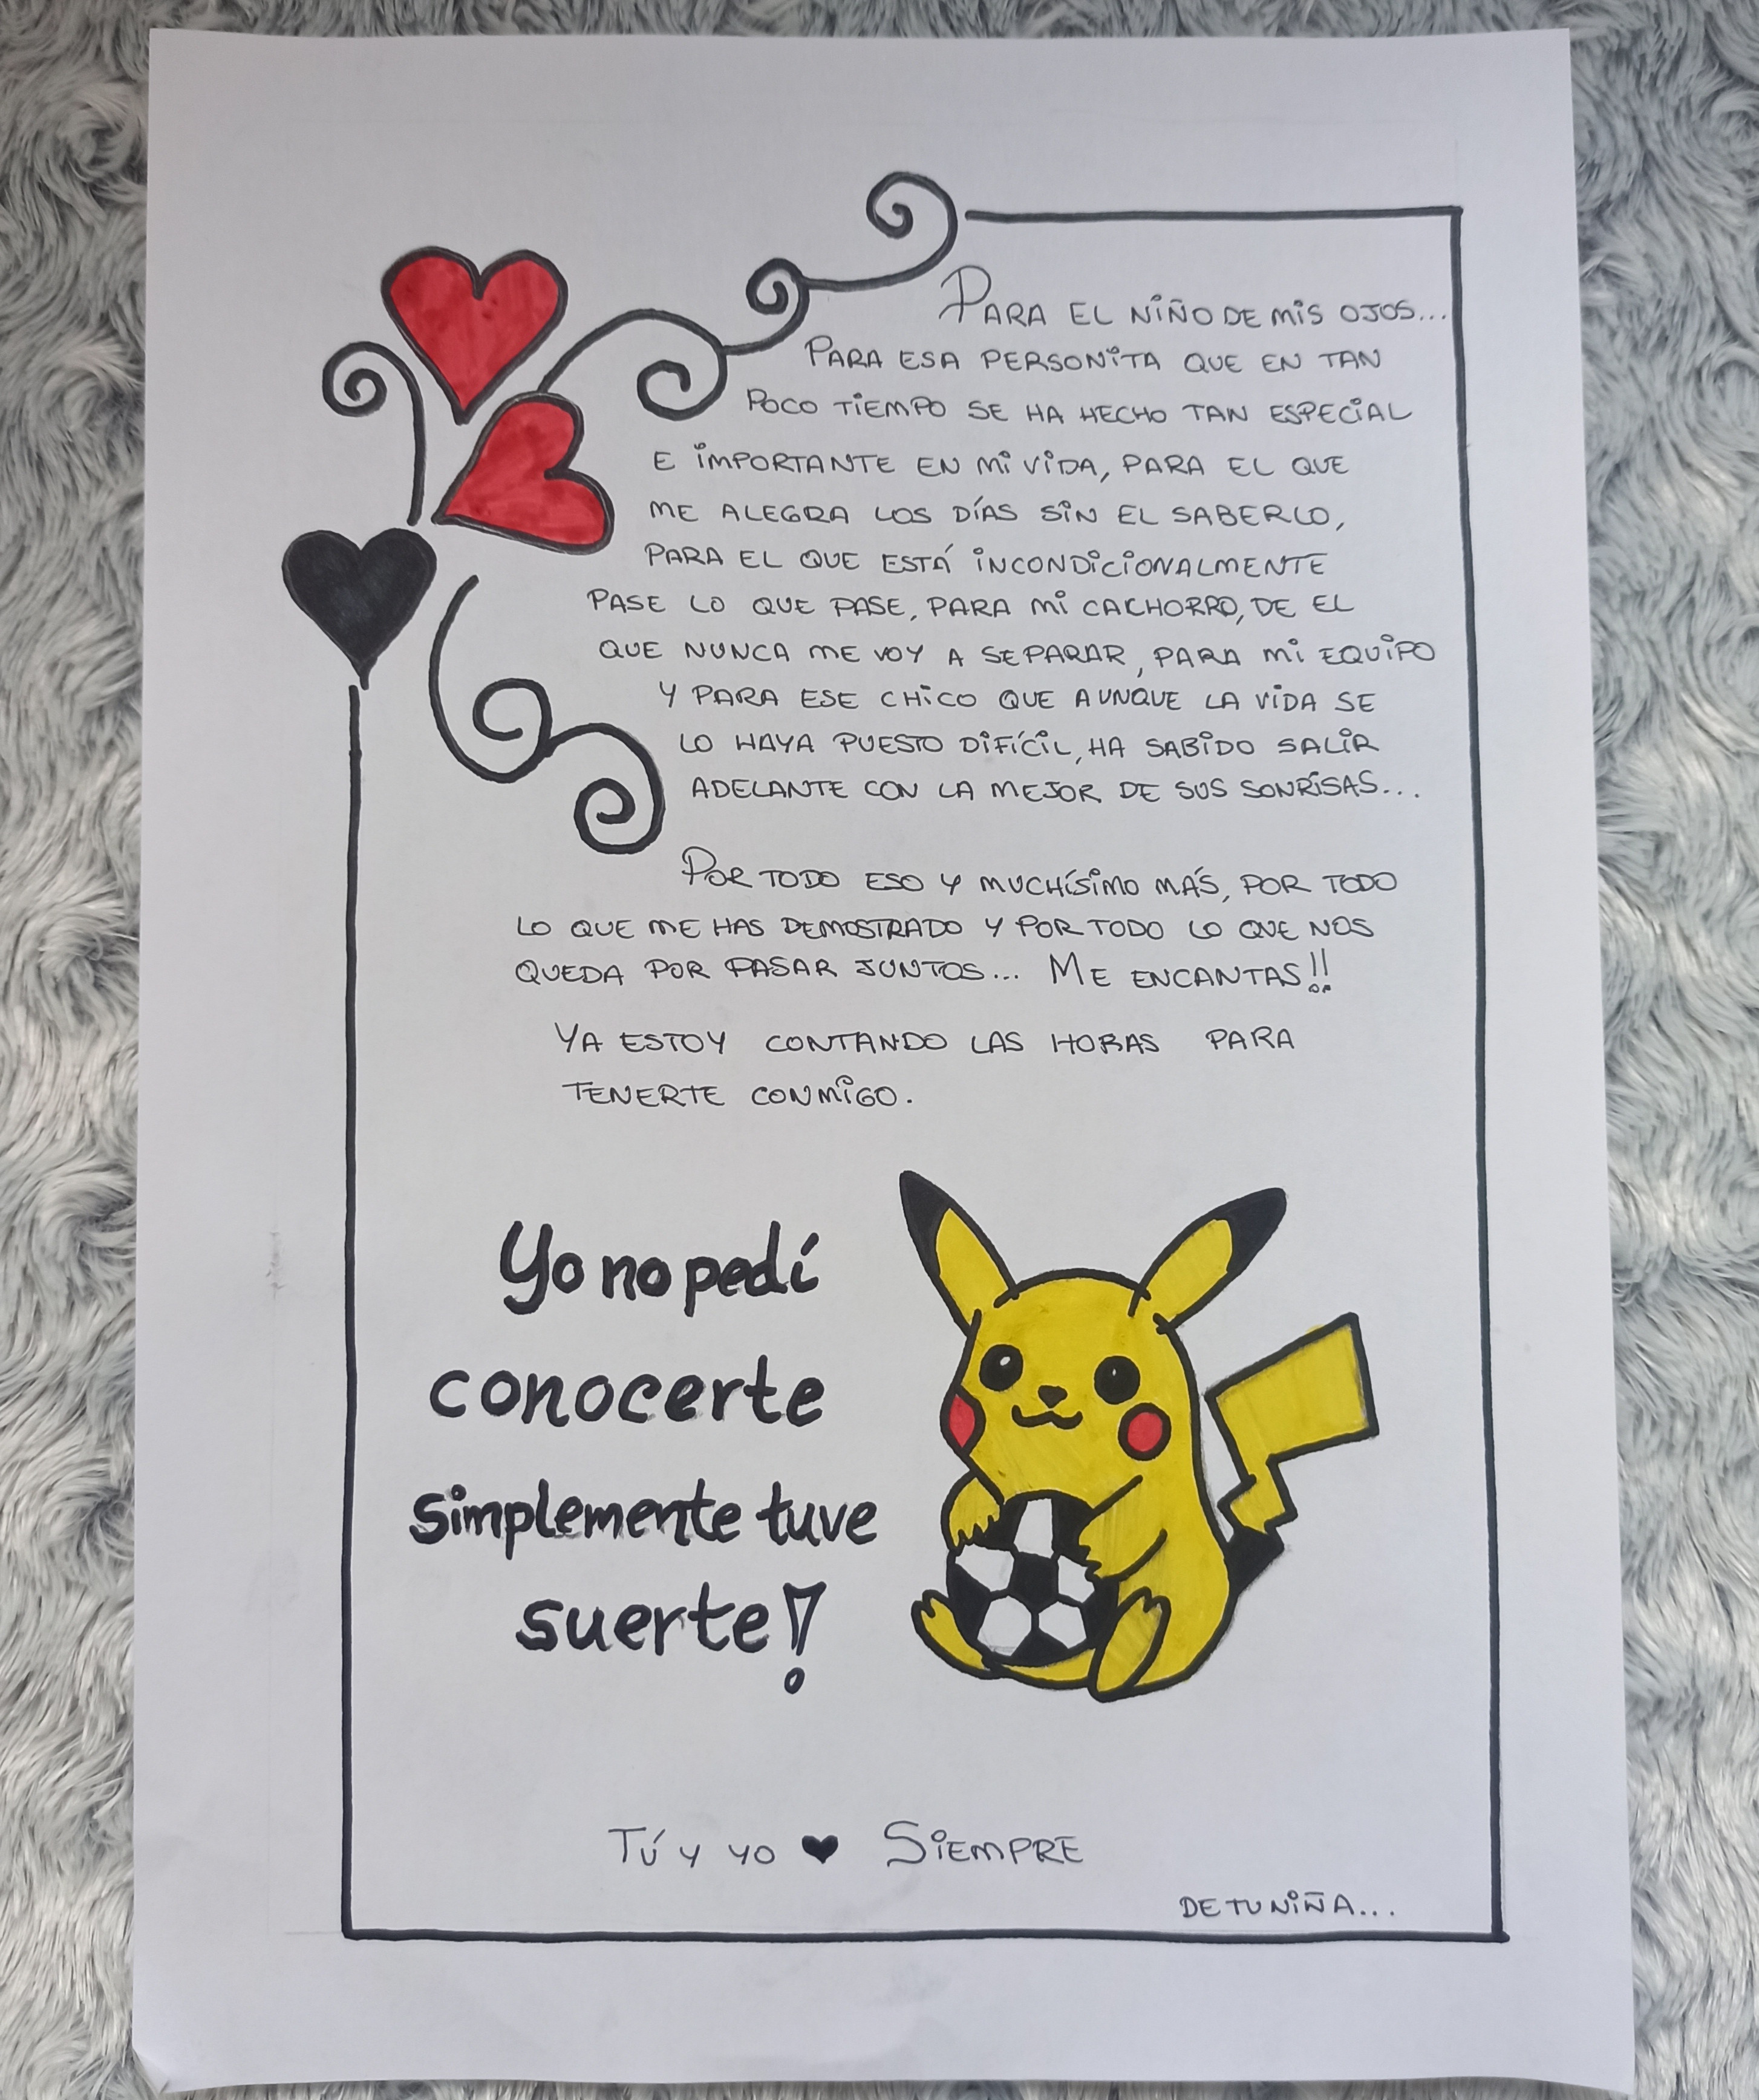 PARA EL NIÑO DE MIS OJOS...
PARA ESA PERSONITA QUE EN TAN
POCO TIEMPO SE HA HECHO TAN ESPECIAL
E IMPORTANTE EN MI VIDA, PARA EL QUE
ME ALEGRA LOS DÍAS SIN EL SABERLO,
PARA EL QUE ESTÁ INCONDICIONALMENTE
PASE LO QUE PASE, PARA MI CACHORRO, DE EL
QUE NUNCA ME VOY A SEPARAR, PARA MI EQUIPO
Y PARA ESE CHICO QUE AUNQUE LA VIDA SE
LO HAYA PUESTO DIFÍCIL, HA SABIDO SALIR
ADELANTE CON LA MEJOR DE SUS SONRISAS...
POR TODO ESO Y MUCHÍSIMO MÁS, POR TODO
LO QUE ME HAS DEMOSTRADO Y POR TODO LO QUE NOS
QUEDA POR PASAR JUNTOS... ME ENCANTAS!!
YA ESTOY CONTANDO LAS HORAS PARA
TENERTE CONMIGO.
Yo no pedí
conocerte
simplemente tuve
suerte!
TÚ Y YO ♥ SIEMPRE
DE TU NIÑA...